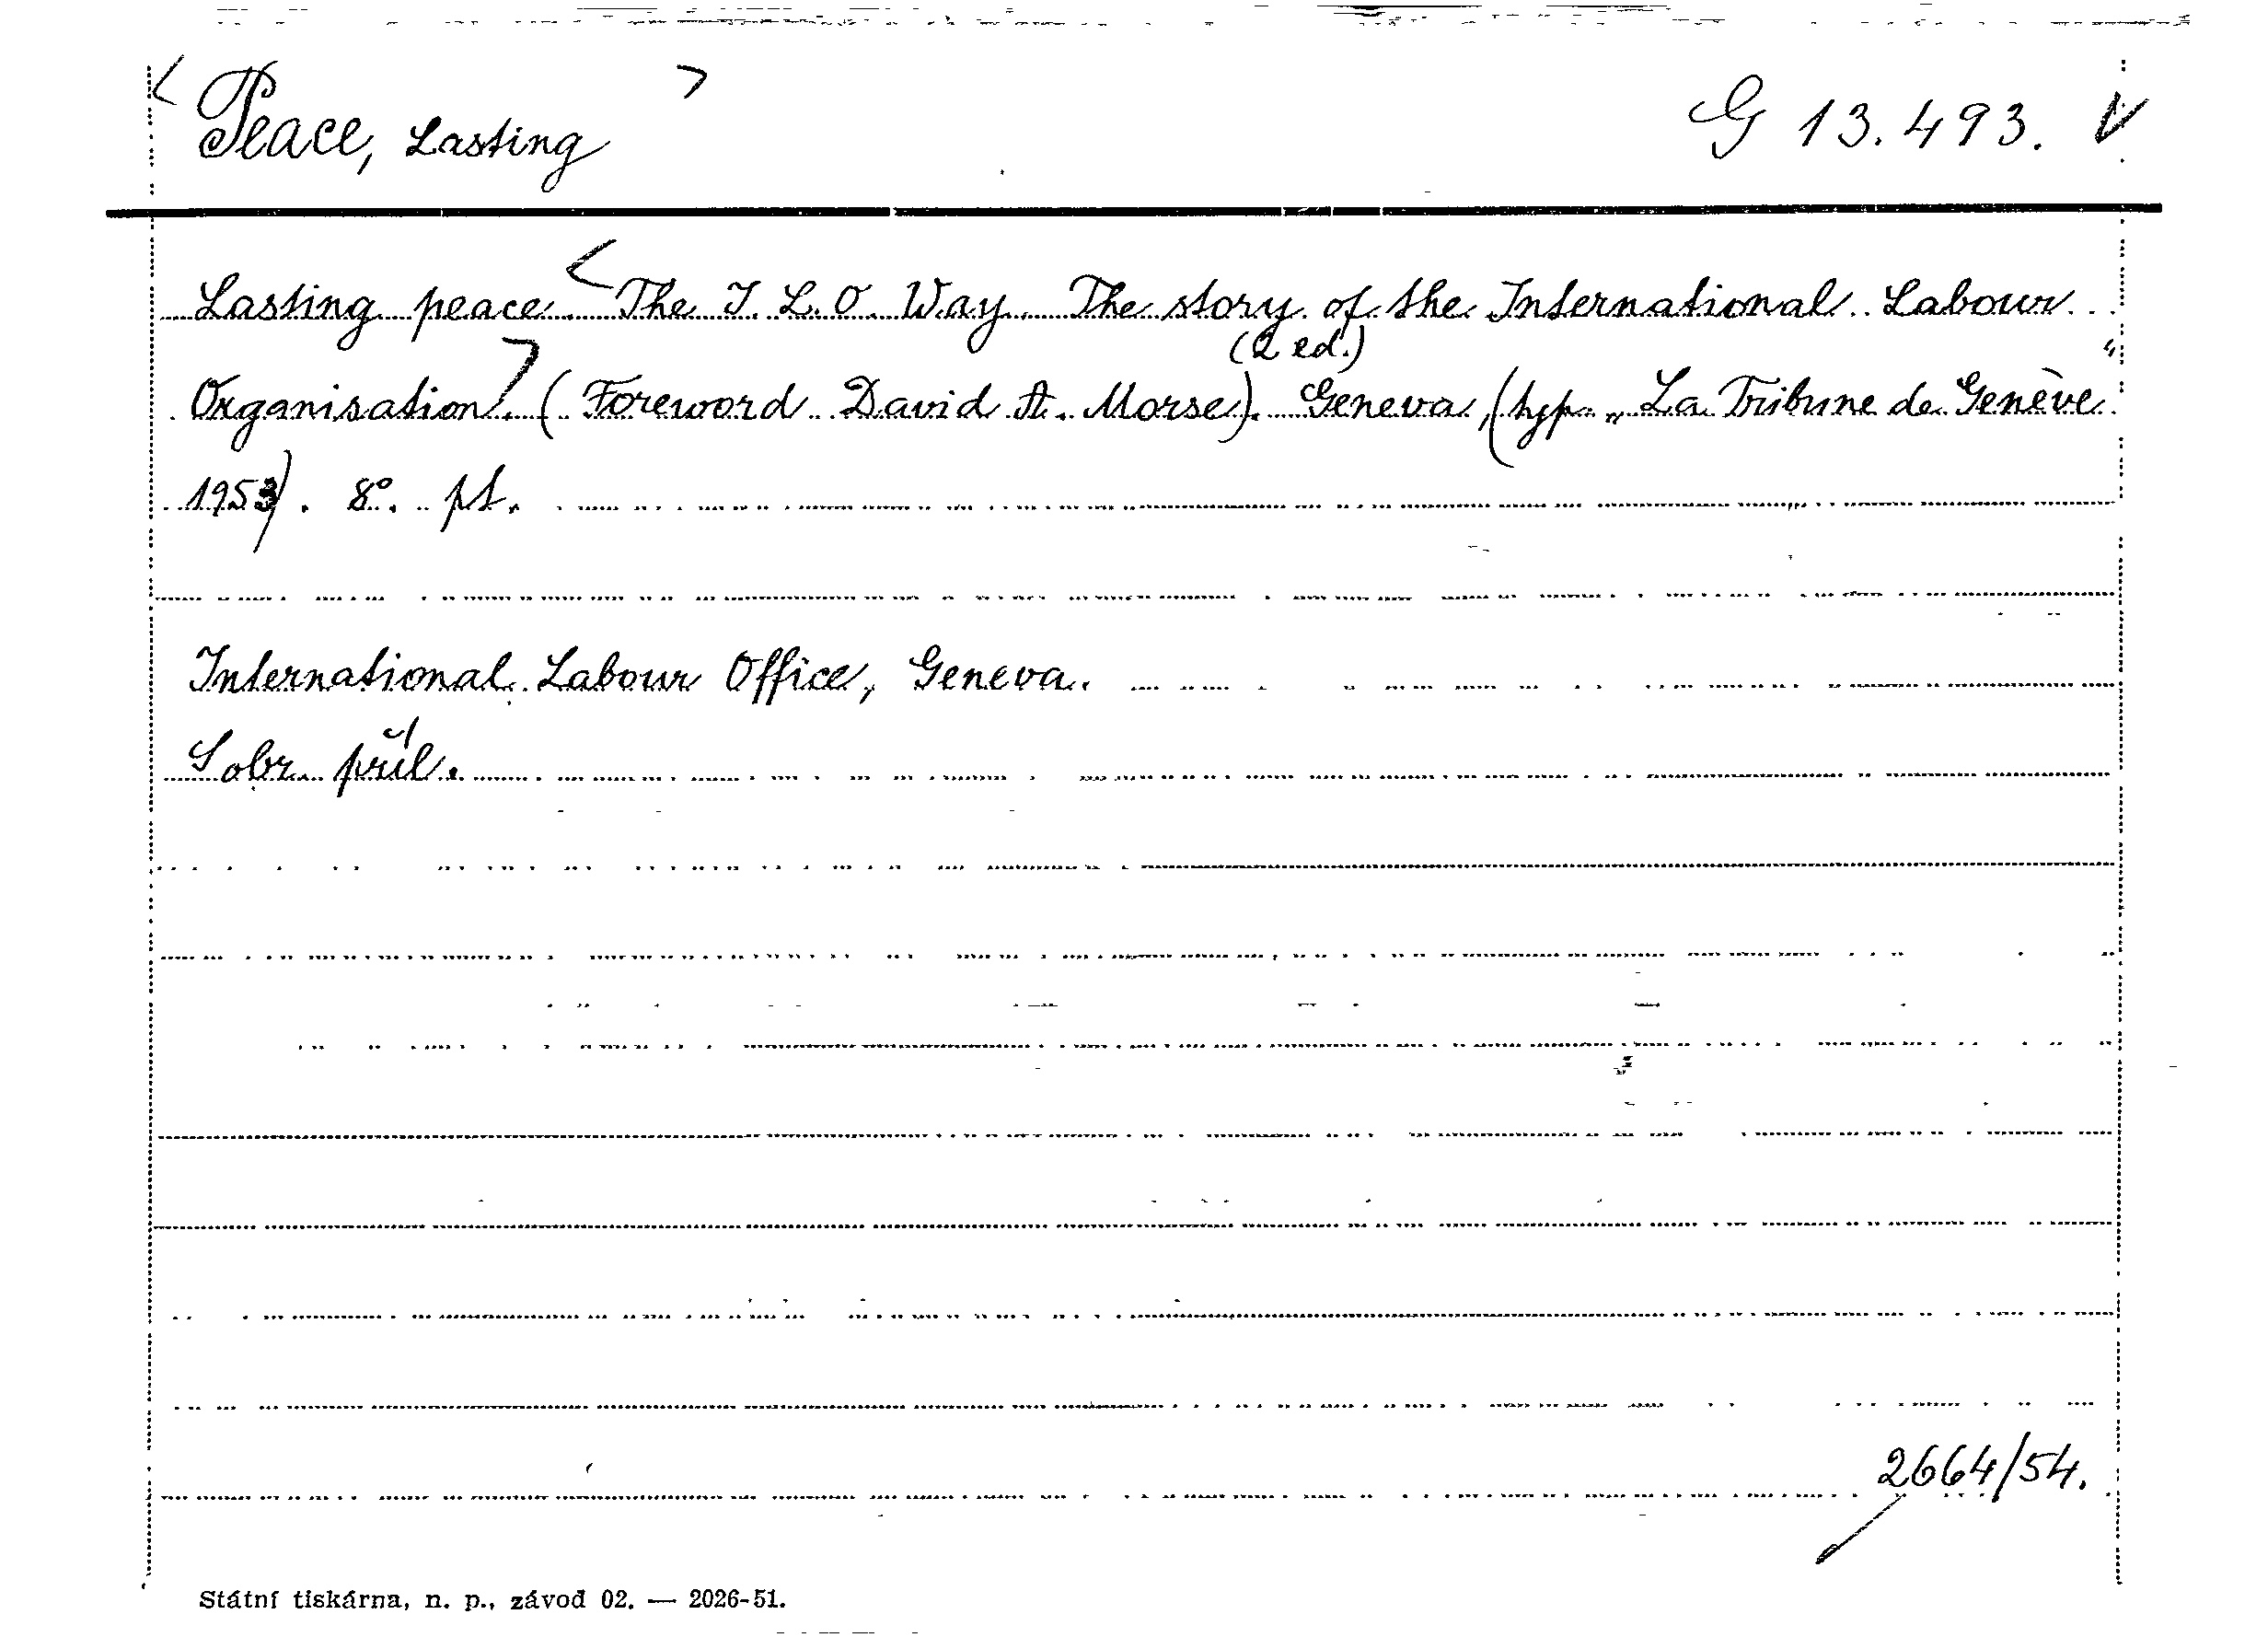 < Peace, Lasting > G 13.493. V
Lasting peace. < The I. L. O. Way. The story of the International Labour
(2 ed.)
Organisation. > (Foreword David A. Morse). Geneva, (typ. „La Tribune de Genève“
1953). 8°. pt.
International Labour Office, Geneva.
S obr. příl.
2664/54.
Státní tiskárna, n. p., závod 02. — 2026-51.